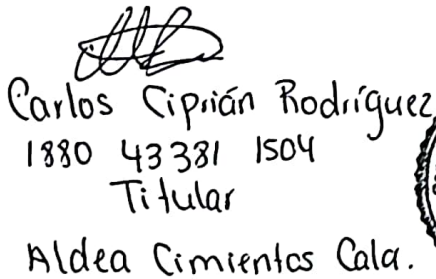 Carlos Ciprián Rodríguez
1880 43381 1504
Titular
Aldea Cimientos Cala.